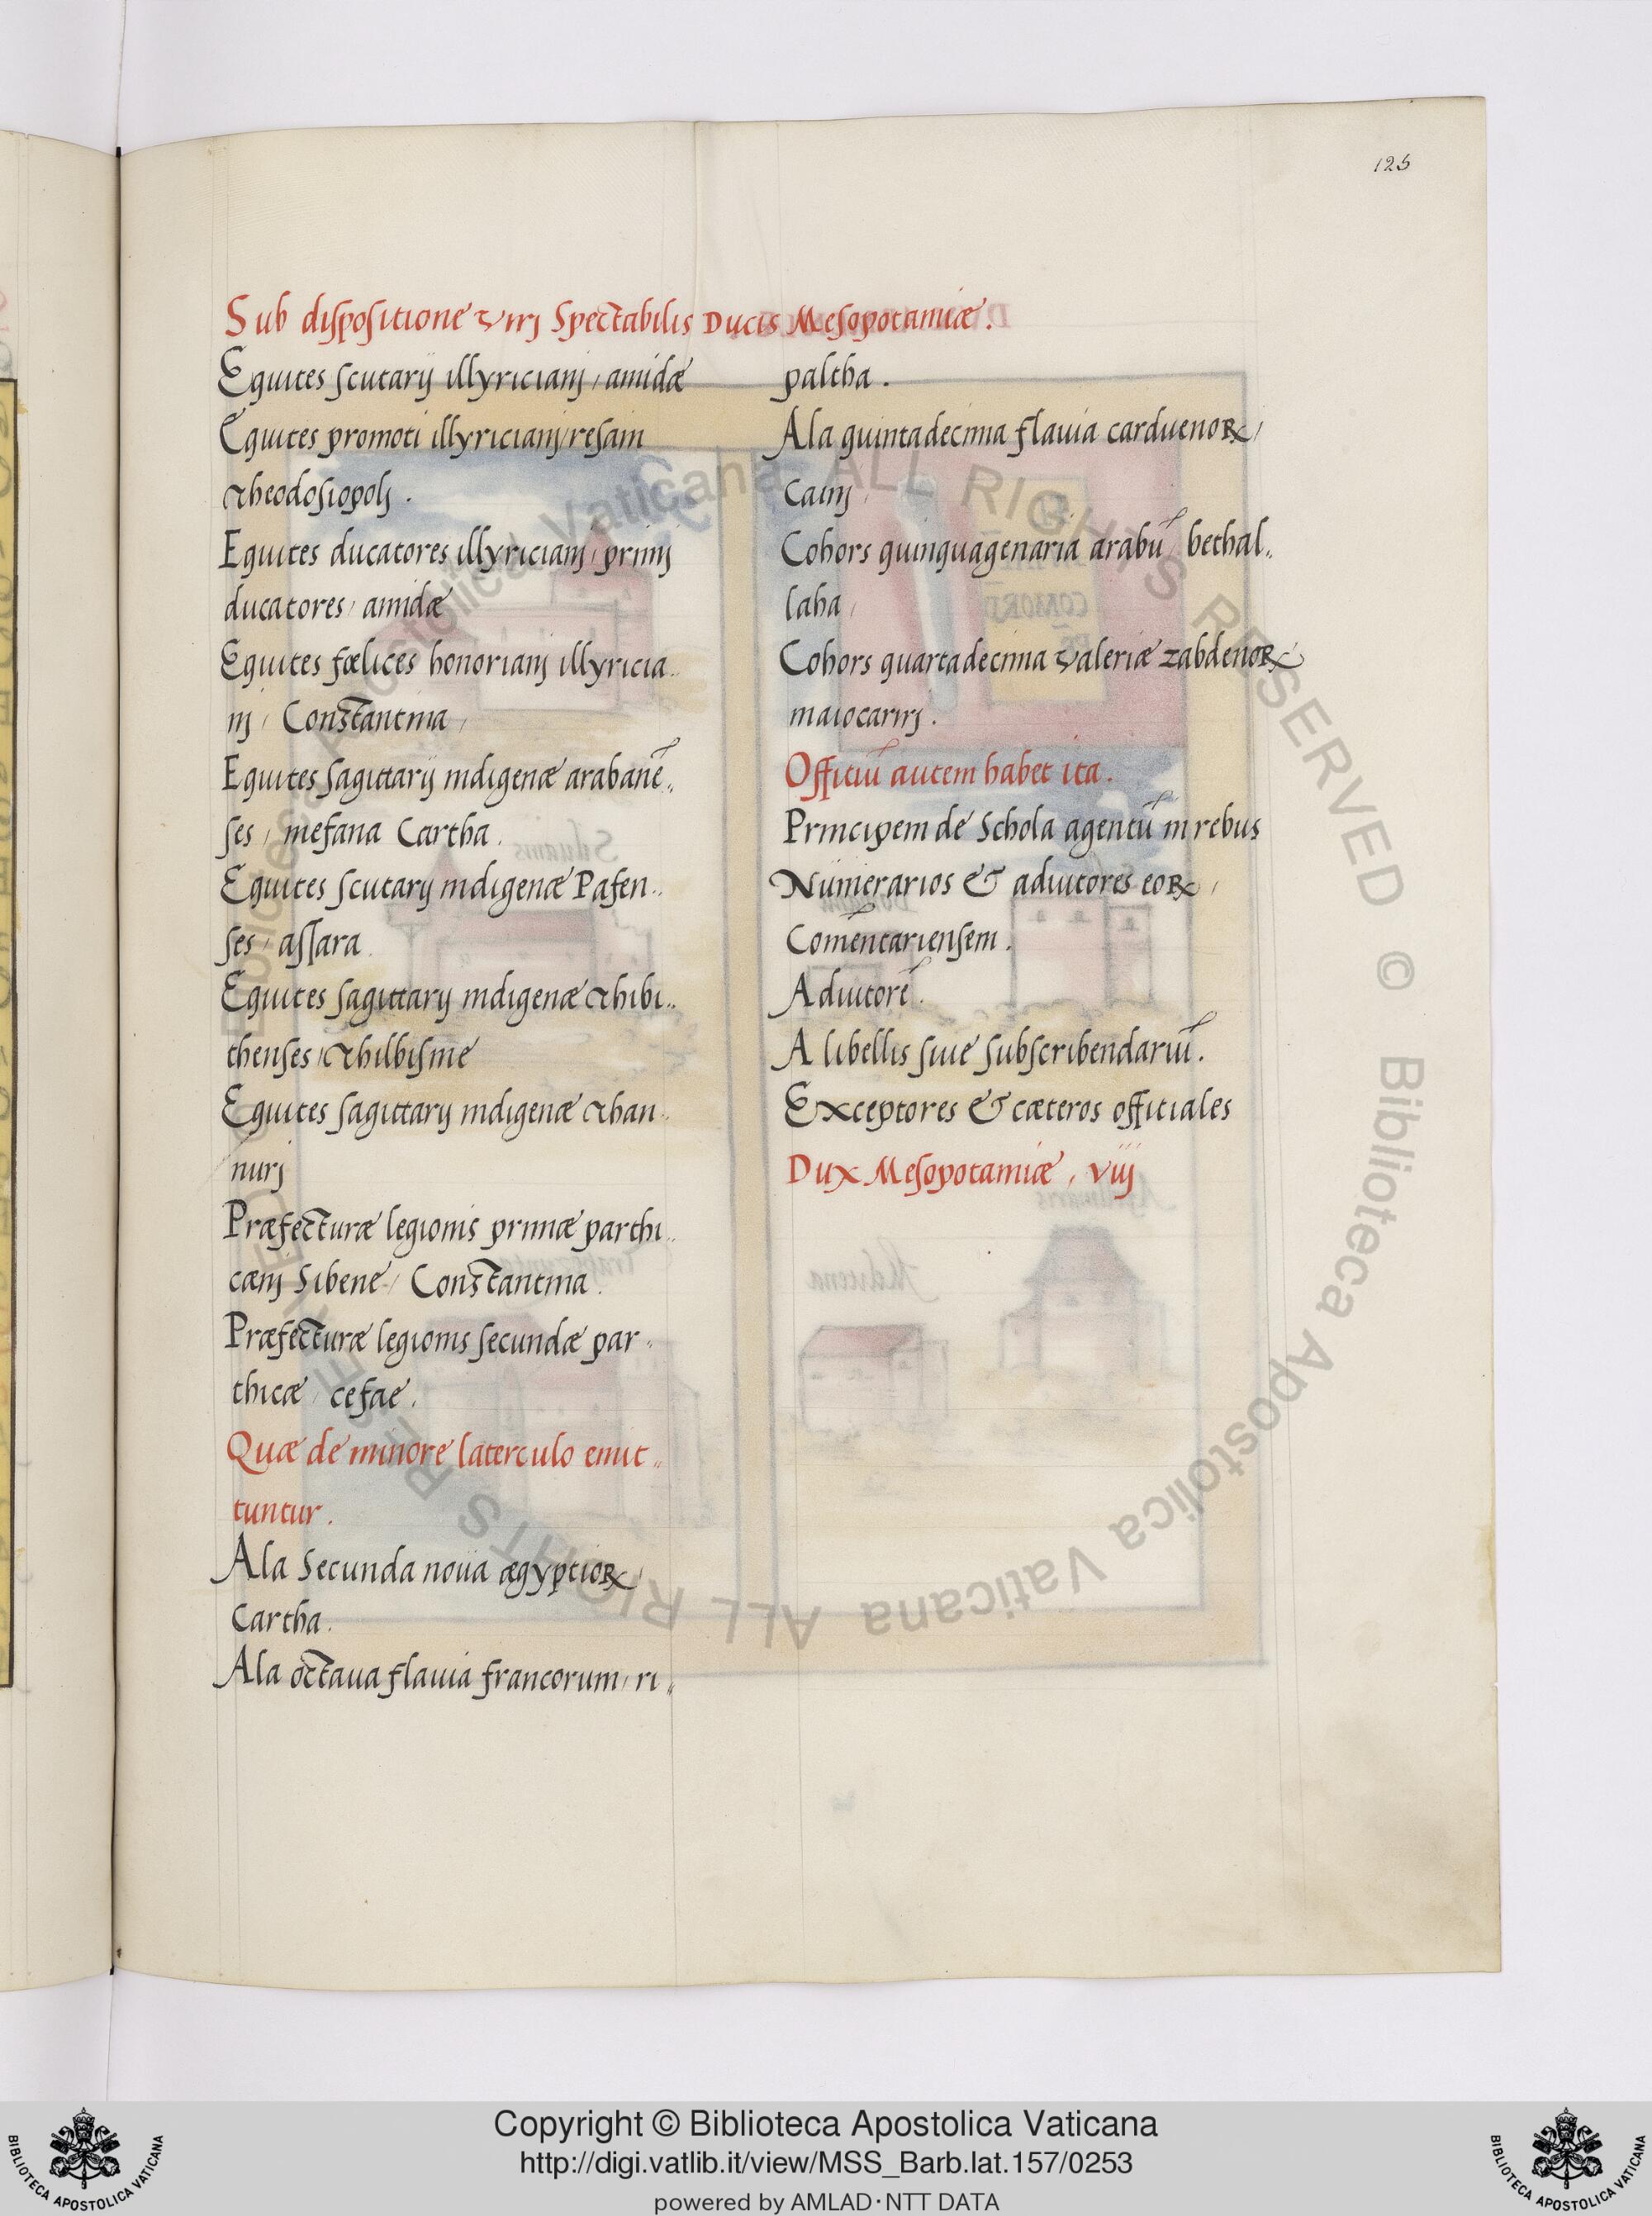 125
Sub dispositione virj Spectabilis Ducis Mesopotamiæ.
Equites scutarij illyricianj, amidæ
Equites promoti illyricianj, resain
theodosiopolj.
Equites ducatores illyricianj, primj
ducatores, amidæ
Equites fœlices honorianj illyricia„
nj, Constantina,
Equites sagittarij indigenæ arabanē„
ses, mefana Cartha.
Equites scutarij indigenæ Pafen„
ses, assara.
Equites sagittarij indigenæ thibi„
thenses, thilbisme
Equites sagittarij indigenæ than„
nurj
Præfecturæ legionis primæ parthi„
cænj Sibene, Constantina.
Præfecturæ legionis secundæ par„
thicæ, cefae.
Quæ de minore laterculo emit„
tuntur.
Ala Secunda noua ægyptioꝝ,
Cartha.
Ala octaua flauia francorum, ri„
paltha.
Ala quintadecima flauia carduenoꝝ,
Cainj,
Cohors quinquagenaria arabū, bethal„
laha,
Cohors quartadecima valeriæ zabdenoꝝ,
maiocarirj.
Offitiū autem habet ita.
Principem de Schola agentū in rebus
Numerarios & adiutores eoꝝ,
Comentariensem.
Adiutorē.
A libellis siue subscribendariū.
Exceptores & cæteros offitiales
Dux Mesopotamiæ, viij
Copyright © Biblioteca Apostolica Vaticana
http://digi.vatlib.it/view/MSS_Barb.lat.157/0253
powered by AMLAD·NTT DATA
BIBLIOTECA APOSTOLICA VATICANA
BIBLIOTECA APOSTOLICA VATICANA